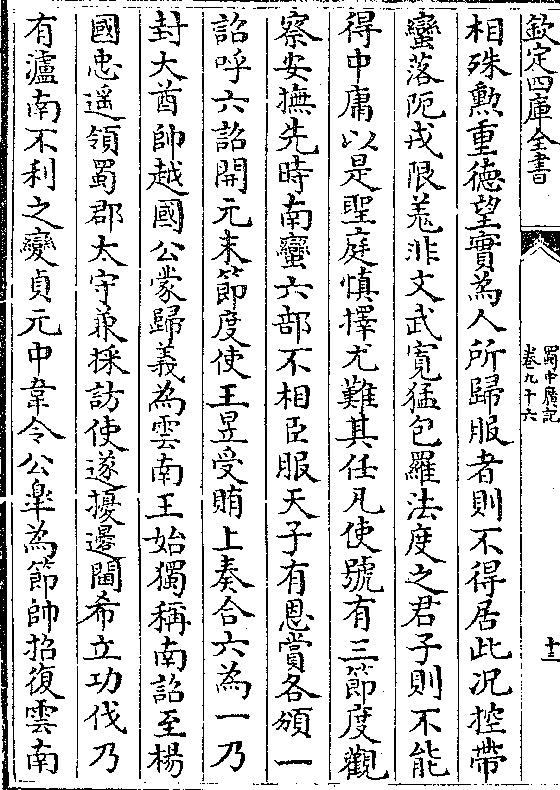 欽定四庫全書
蜀中廣記
卷九十六
十三
相殊勲重德望實為人所歸服者則不得居此况控帶
蠻落阨戎限羗非文武寛猛包羅法度之君子則不能
得中庸以是聖庭慎擇尤難其任凡使號有三節度觀
察安撫先時南蠻六部不相臣服天子有恩賞各頒一
詔呼六詔開元末節度使王昱受賄上奏合六為一乃
封大酋帥越國公蒙歸義為雲南王始獨稱南詔至楊
國忠遥領蜀郡太守兼採訪使遂擾邊閫希立功伐乃
有瀘南不利之變貞元中韋令公臯為節帥招復雲南